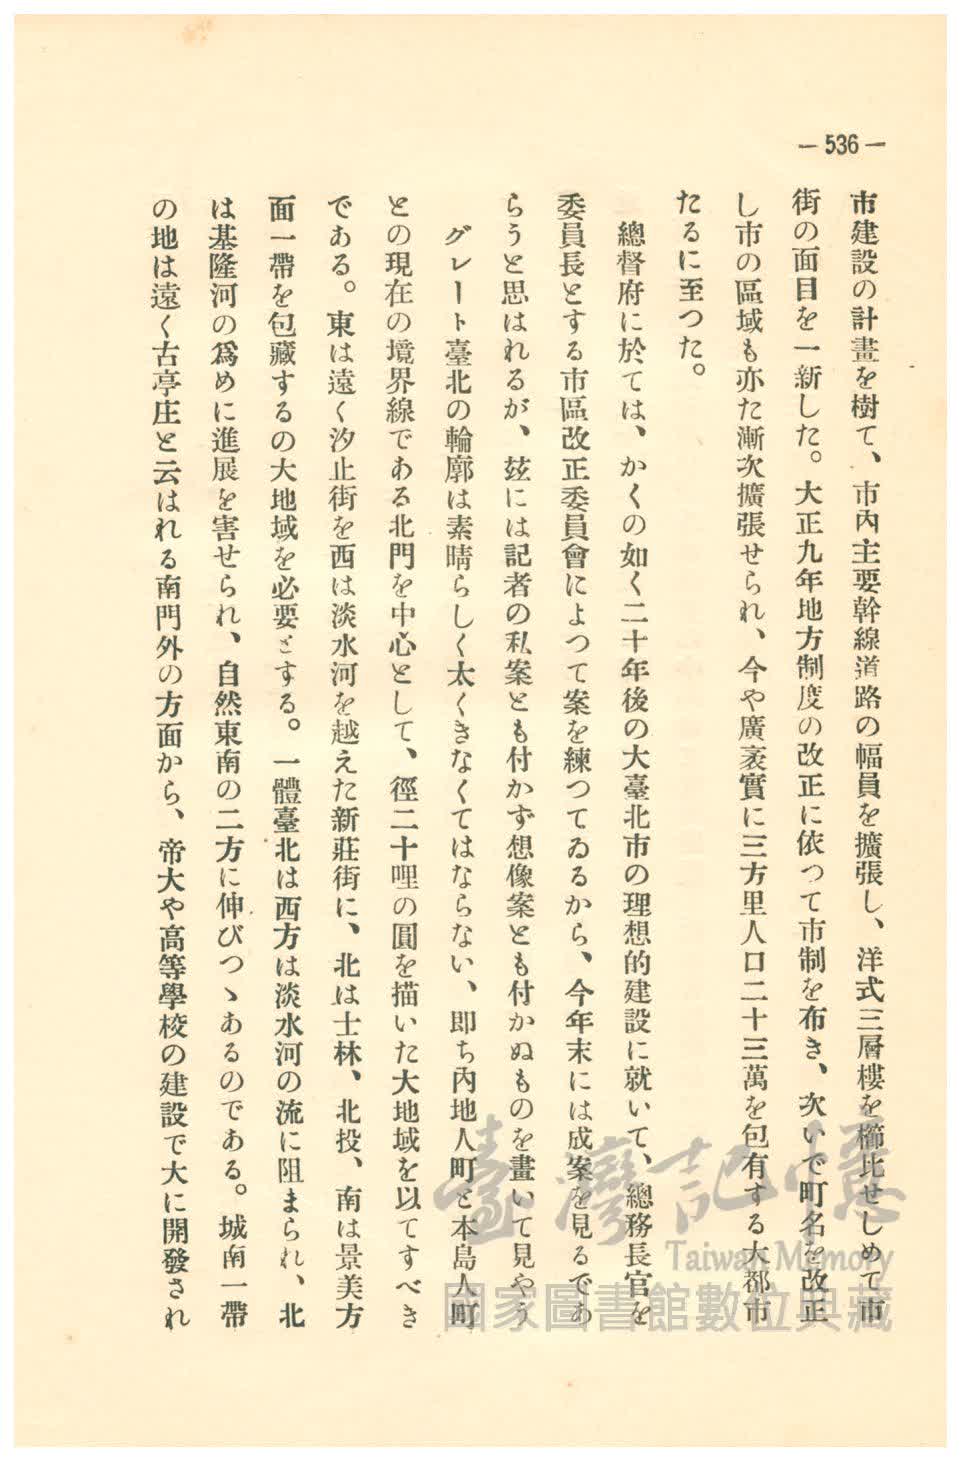 — 536 —
市建設の計畫を樹て、市內主要幹線道路の幅員を擴張し、洋式三層樓を櫛比せしめて市
街の面目を一新した。大正九年地方制度の改正に依つて市制を布き、次いで町名を改正
し市の區域も亦た漸次擴張せられ、今や廣袤實に三方里人口二十三萬を包有する大都市
たるに至つた。
總督府に於ては、かくの如く二十年後の大臺北市の理想的建設に就いて、總務長官を
委員長とする市區改正委員會によつて案を練つてゐるから、今年末には成案を見るであ
らうと思はれるが、玆には記者の私案とも付かず想像案とも付かぬものを畫いて見やう
グレート臺北の輪廓は素晴らしく太くきなくてはならない、即ち內地人町と本島人町
との現在の境界線である北門を中心として、徑二十哩の圓を描いた大地域を以てすべき
である。東は遠く汐止街を西は淡水河を越えた新莊街に、北は士林、北投、南は景美方
面一帶を包藏するの大地域を必要とする。一體臺北は西方は淡水河の流に阻まられ、北
は基隆河の爲めに進展を害せられ、自然東南の二方に伸びつゝあるのである。城南一帶
の地は遠く古亭庄と云はれる南門外の方面から、帝大や高等學校の建設で大に開發され
臺灣記憶
Taiwan Memory
國家圖書館數位典藏